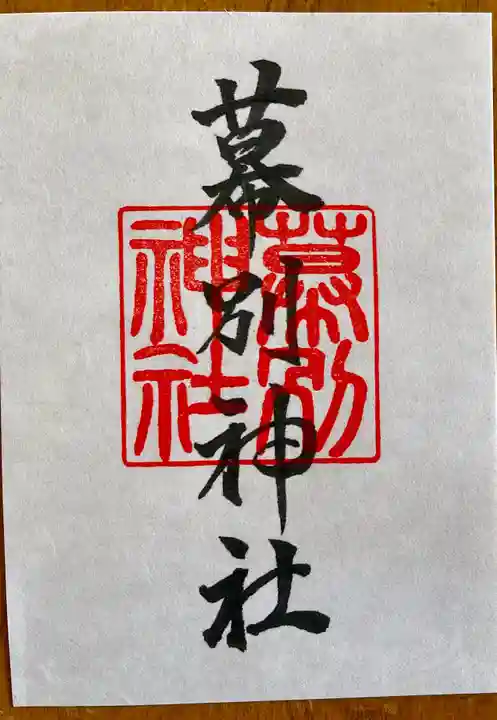 幕別神社
幕別
神社